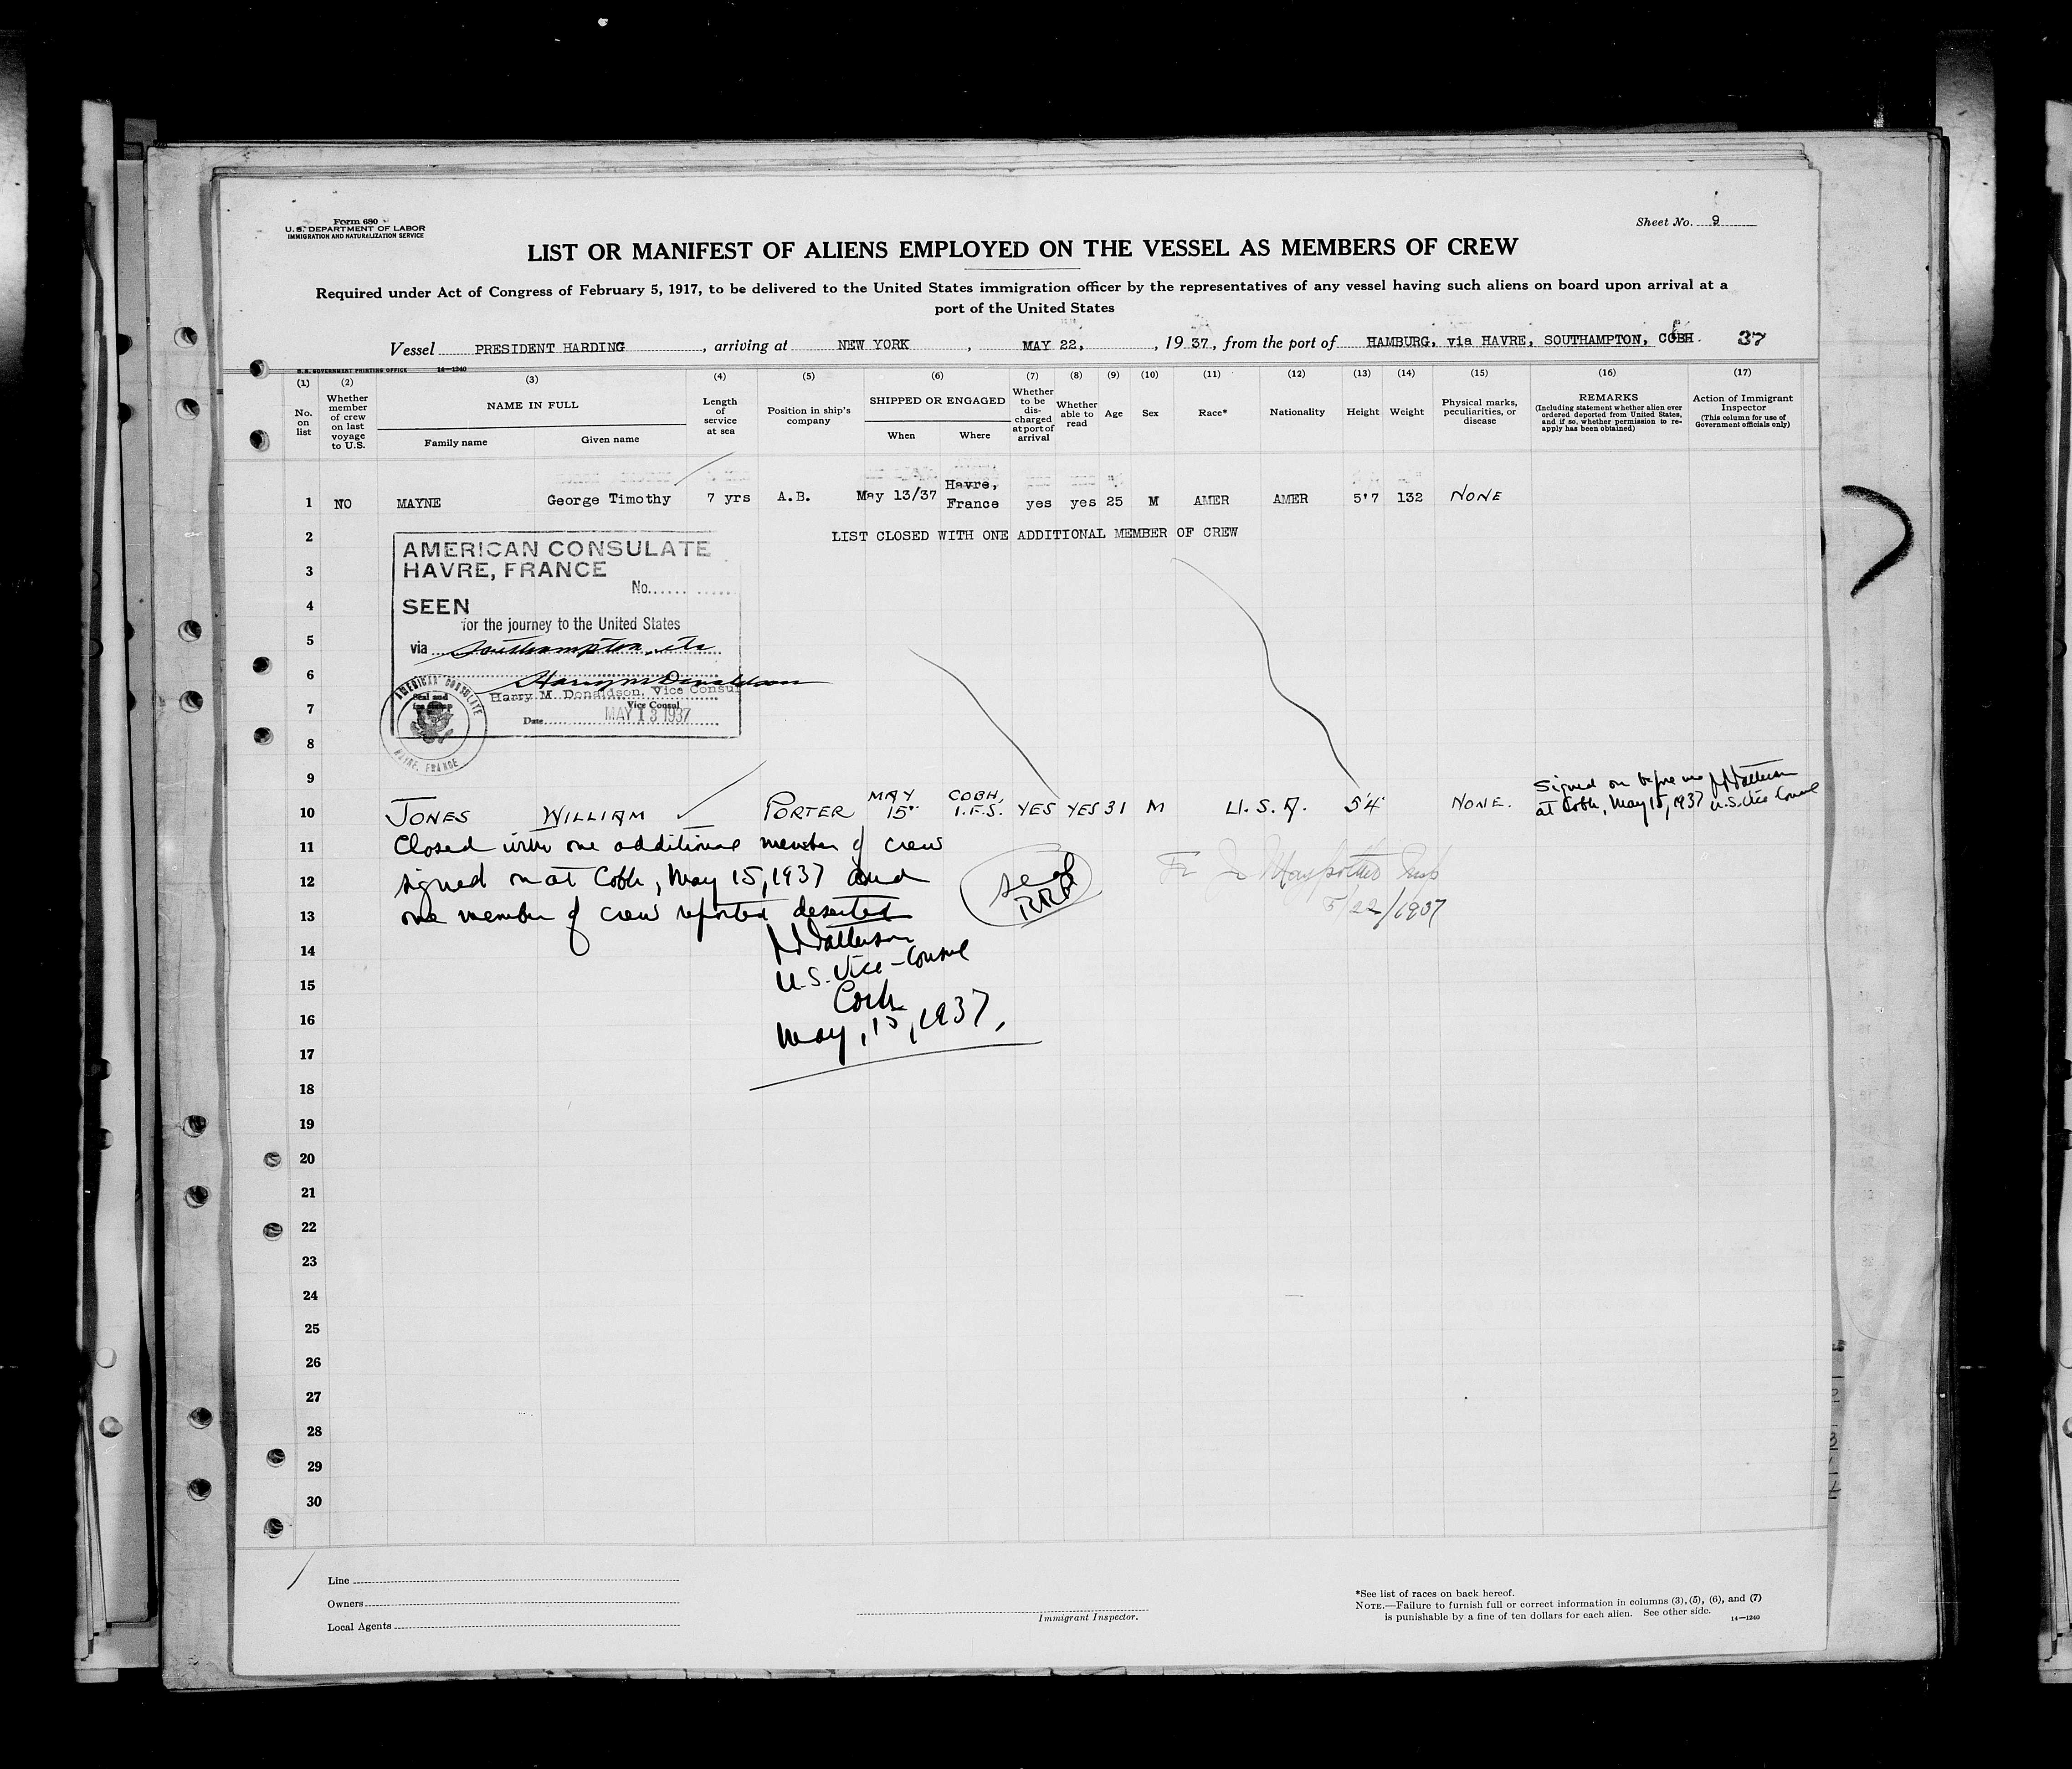 Form 680
U. S. DEPARTMENT OF LABOR
IMMIGRATION AND NATURALIZATION SERVICE
Sheet No. 9
LIST OR MANIFEST OF ALIENS EMPLOYED ON THE VESSEL AS MEMBERS OF CREW
Required under Act of Congress of February 5, 1917, to be delivered to the United States immigration officer by the representatives of any vessel having such aliens on board upon arrival at a
port of the United States
Vessel PRESIDENT HARDING, arriving at NEW YORK, MAY 22, , 19 37, from the port of HAMBURG, via HAVRE, SOUTHAMPTON, COBH. 37
U. S. GOVERNMENT PRINTING OFFICE 14—1240
(1) No. on list
(2) Whether member of crew on last voyage to U.S.
(3) NAME IN FULL
Family name Given name
(4) Length of service at sea
(5) Position in ship's company
(6) SHIPPED OR ENGAGED
When Where
(7) Whether to be discharged at port of arrival
(8) Whether able to read
(9) Age
(10) Sex
(11) Race*
(12) Nationality
(13) Height
(14) Weight
(15) Physical marks, peculiarities, or disease
(16) REMARKS
(Including statement whether alien ever ordered deported from United States, and if so, whether permission to re-apply has been obtained)
(17) Action of Immigrant Inspector
(This column for use of Government officials only)
1 NO MAYNE George Timothy 7 yrs A.B. May 13/37 Havre, France yes yes 25 M AMER AMER 5'7 132 NONE
2 LIST CLOSED WITH ONE ADDITIONAL MEMBER OF CREW
AMERICAN CONSULATE
HAVRE, FRANCE
3
No.
4 SEEN
for the journey to the United States
5 via Southampton, etc
6 Harry M Donaldson
Harry M. Donaldson, Vice Consul
7 Vice Consul
Date MAY 13 1937
AMERICAN CONSULATE
Seal and
fee stamp
HAVRE, FRANCE
8
9
10 JONES WILLIAM PORTER MAY 15" COBH, I.F.S. YES YES 31 M U.S.A. 5'4" NONE. Signed on before me at Cobh, May 15, 1937 Patterson U.S. Vice Consul
11 Closed with one additional member of crew
12 signed on at Cobh, May 15, 1937 and
13 one member of crew reported deserted
seal
RRP
5/22/1937
14 Patterson
15 U.S. Vice-Consul
16 Cork
May, 15, 1937.
17
18
19
20
21
22
23
24
25
26
27
28
29
30
Line
Owners
Local Agents
Immigrant Inspector.
*See list of races on back hereof.
NOTE.—Failure to furnish full or correct information in columns (3), (5), (6), and (7)
is punishable by a fine of ten dollars for each alien. See other side.
14—1240